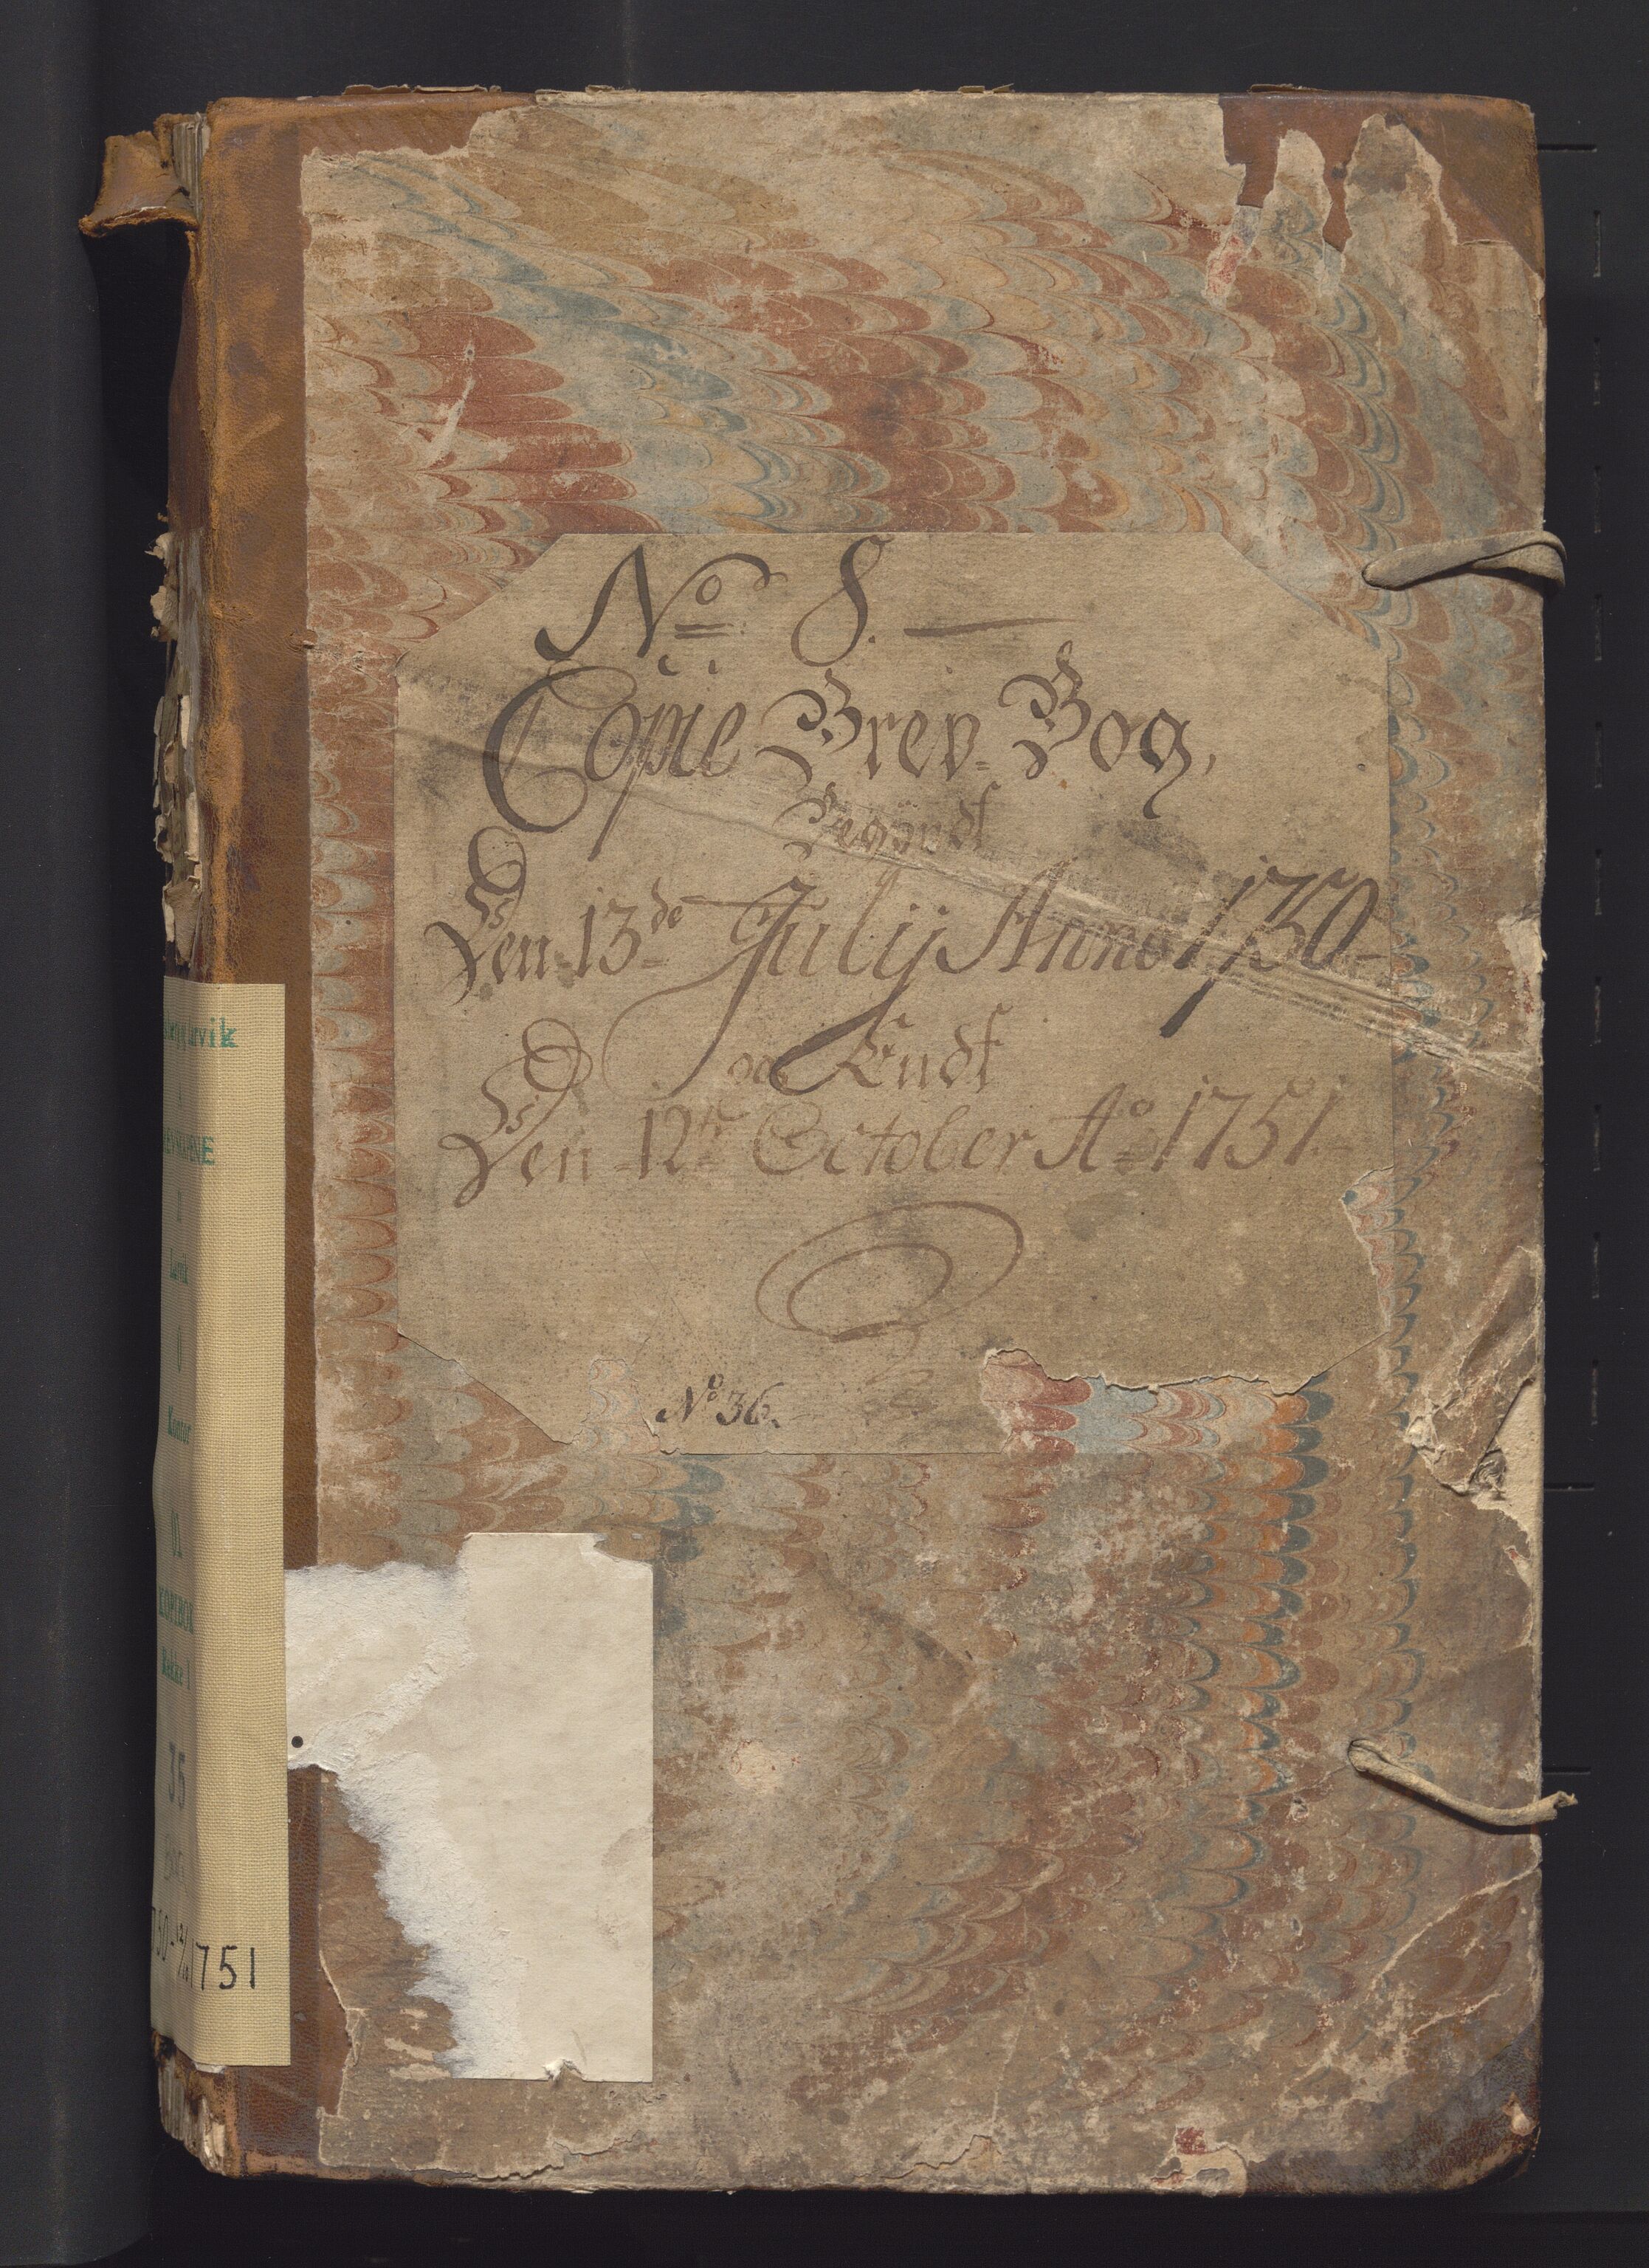 No 8. —
Copie Brev-Bog,
Begyndt
Den 13de Julij Anno 1750
og Endt
Den 12te October Ao 1751.
No 36.
Larvik
Kontor
KOPIBOK
Rekke 1
35
1751